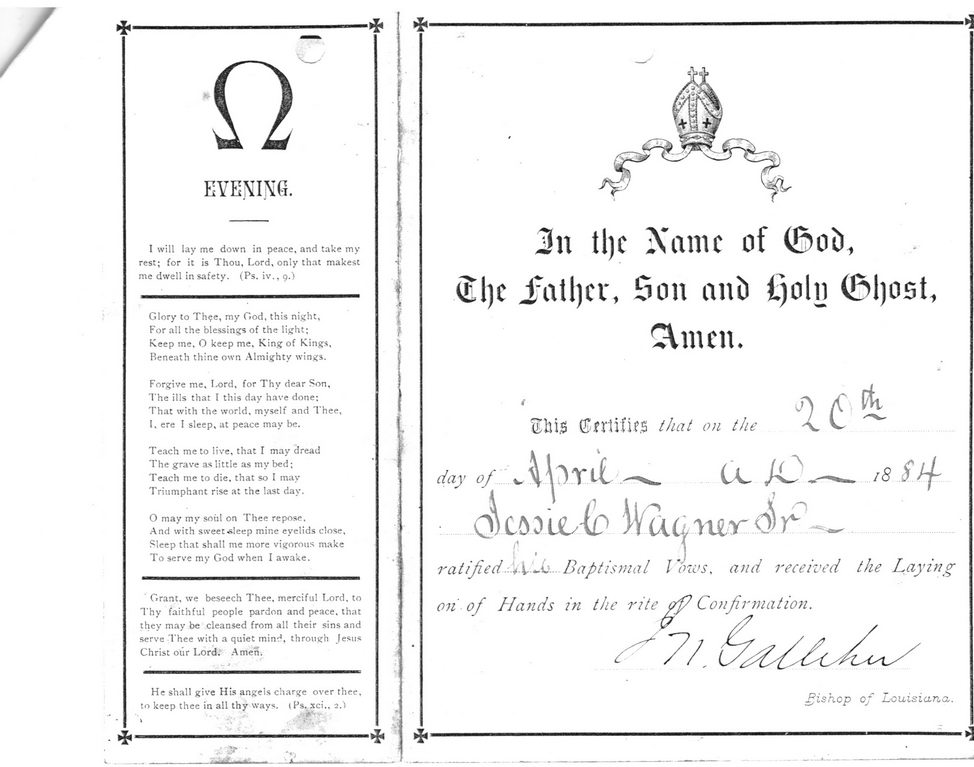 Ω
EVENING.
I will lay me down in peace, and take my
rest; for it is Thou, Lord, only that makest
me dwell in safety. (Ps. iv., 9.)
Glory to Thee, my God, this night,
For all the blessings of the light;
Keep me, O keep me, King of Kings,
Beneath thine own Almighty wings.
Forgive me, Lord, for Thy dear Son,
The ills that I this day have done;
That with the world, myself and Thee,
I, ere I sleep, at peace may be.
Teach me to live, that I may dread
The grave as little as my bed;
Teach me to die, that so I may
Triumphant rise at the last day.
O may my soul on Thee repose,
And with sweet sleep mine eyelids close,
Sleep that shall me more vigorous make
To serve my God when I awake.
Grant, we beseech Thee, merciful Lord, to
Thy faithful people pardon and peace, that
they may be cleansed from all their sins and
serve Thee with a quiet mind, through Jesus
Christ our Lord. Amen.
He shall give His angels charge over thee,
to keep thee in all thy ways. (Ps. xci., 2.)
In the Name of God,
The Father, Son and Holy Ghost,
Amen.
This Certifies that on the 20th
day of April A D 1884
Jessie C Wagner Jr
ratified his Baptismal Vows, and received the Laying
on of Hands in the rite of Confirmation.
J N. Galleher
Bishop of Louisiana.